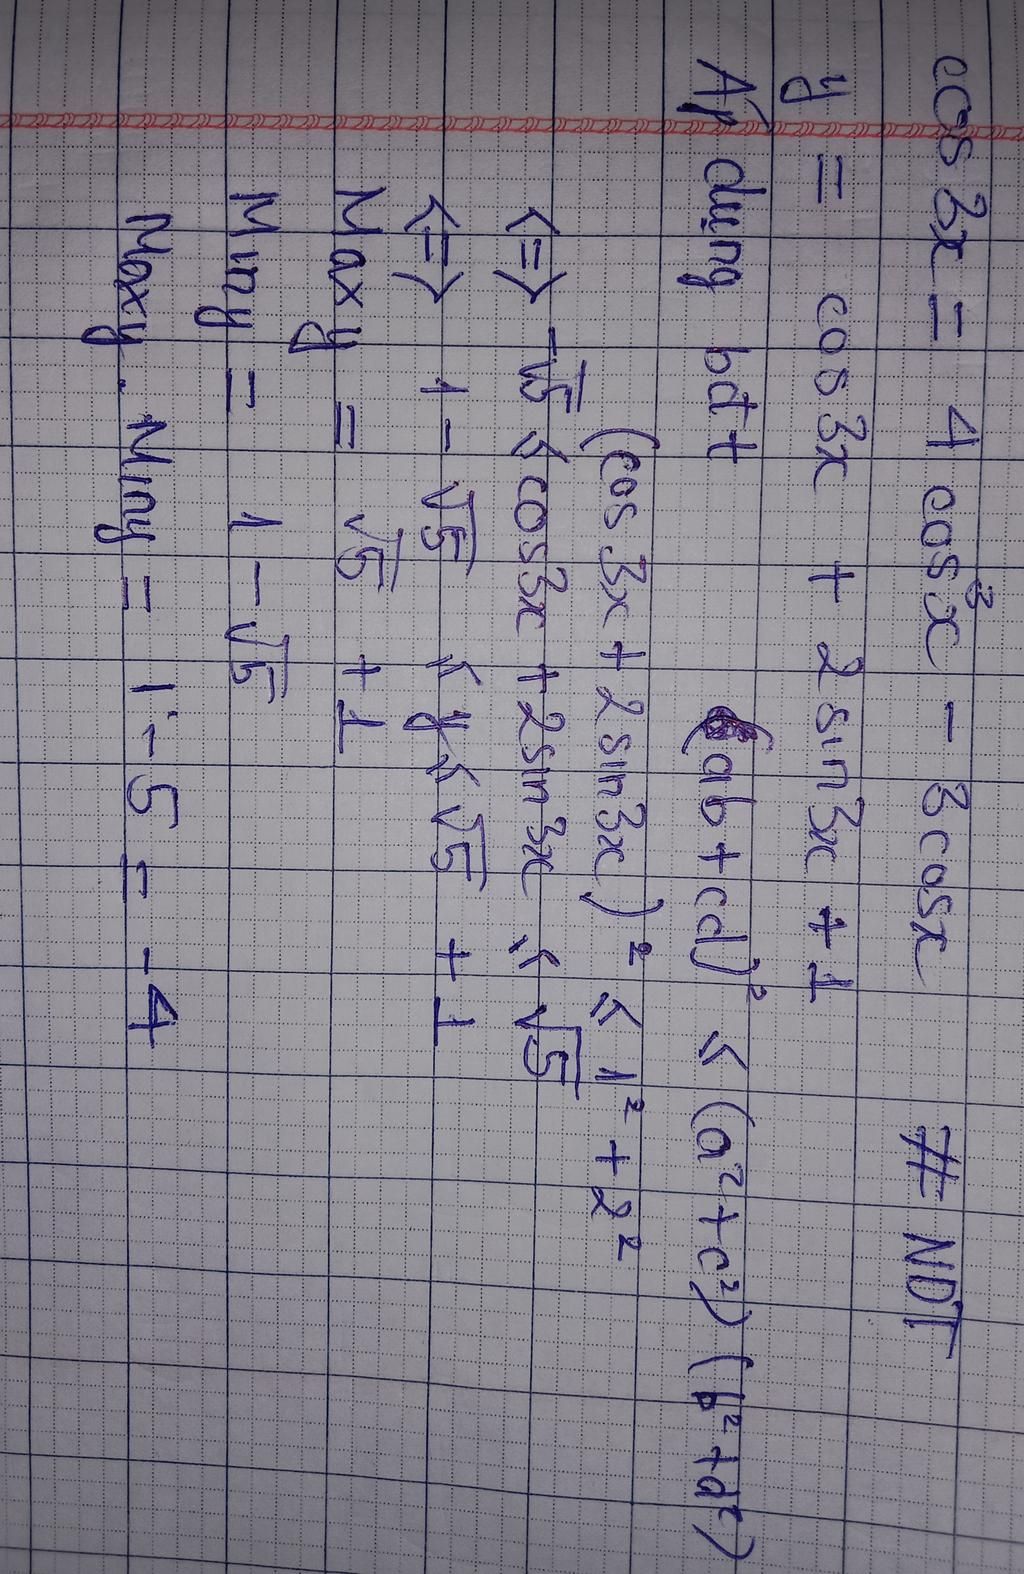 cos 3x = 4 cos³x - 3 cosx # NDT
y = cos 3x + 2 sin 3x + 1
Áp dụng bđt (ab + cd)² ≤ (a² + c²) (b² + d²)
(cos 3x + 2 sin 3x)² ≤ 1² + 2²
<=> -√5 ≤ cos 3x + 2 sin 3x ≤ √5
<=> 1 - √5 ≤ y ≤ √5 + 1
Max y = √5 + 1
Min y = 1 - √5
Max y . Min y = 1 - 5 = -4